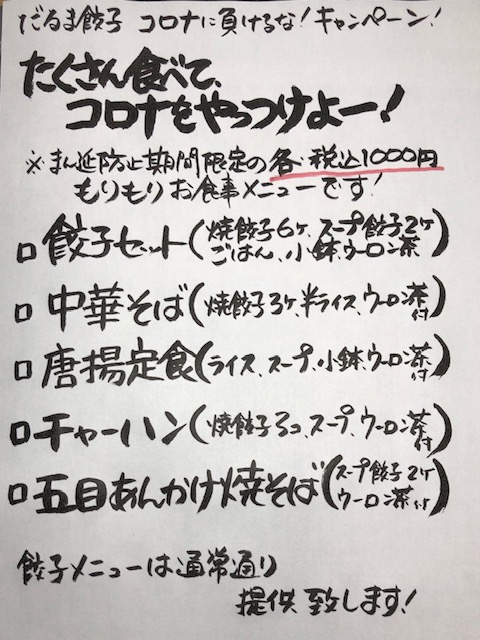 だるま餃子 コロナに負けるな！キャンペーン！
たくさん食べて、
コロナをやっつけよー！
※まん延防止期間限定の各税込1000円
もりもりお食事メニューです！
□ 餃子セット（焼餃子6ヶ、スープ餃子2ヶ
ごはん、小鉢、ウーロン茶）
□ 中華そば（焼餃子3ヶ、半ライス、ウーロン茶付）
□ 唐揚定食（ライス、スープ、小鉢、ウーロン茶付）
□ チャーハン（焼餃子3コ、スープ、ウーロン茶付）
□ 五目あんかけ焼そば（スープ餃子2ヶ
ウーロン茶付）
餃子メニューは通常通り
提供致します！